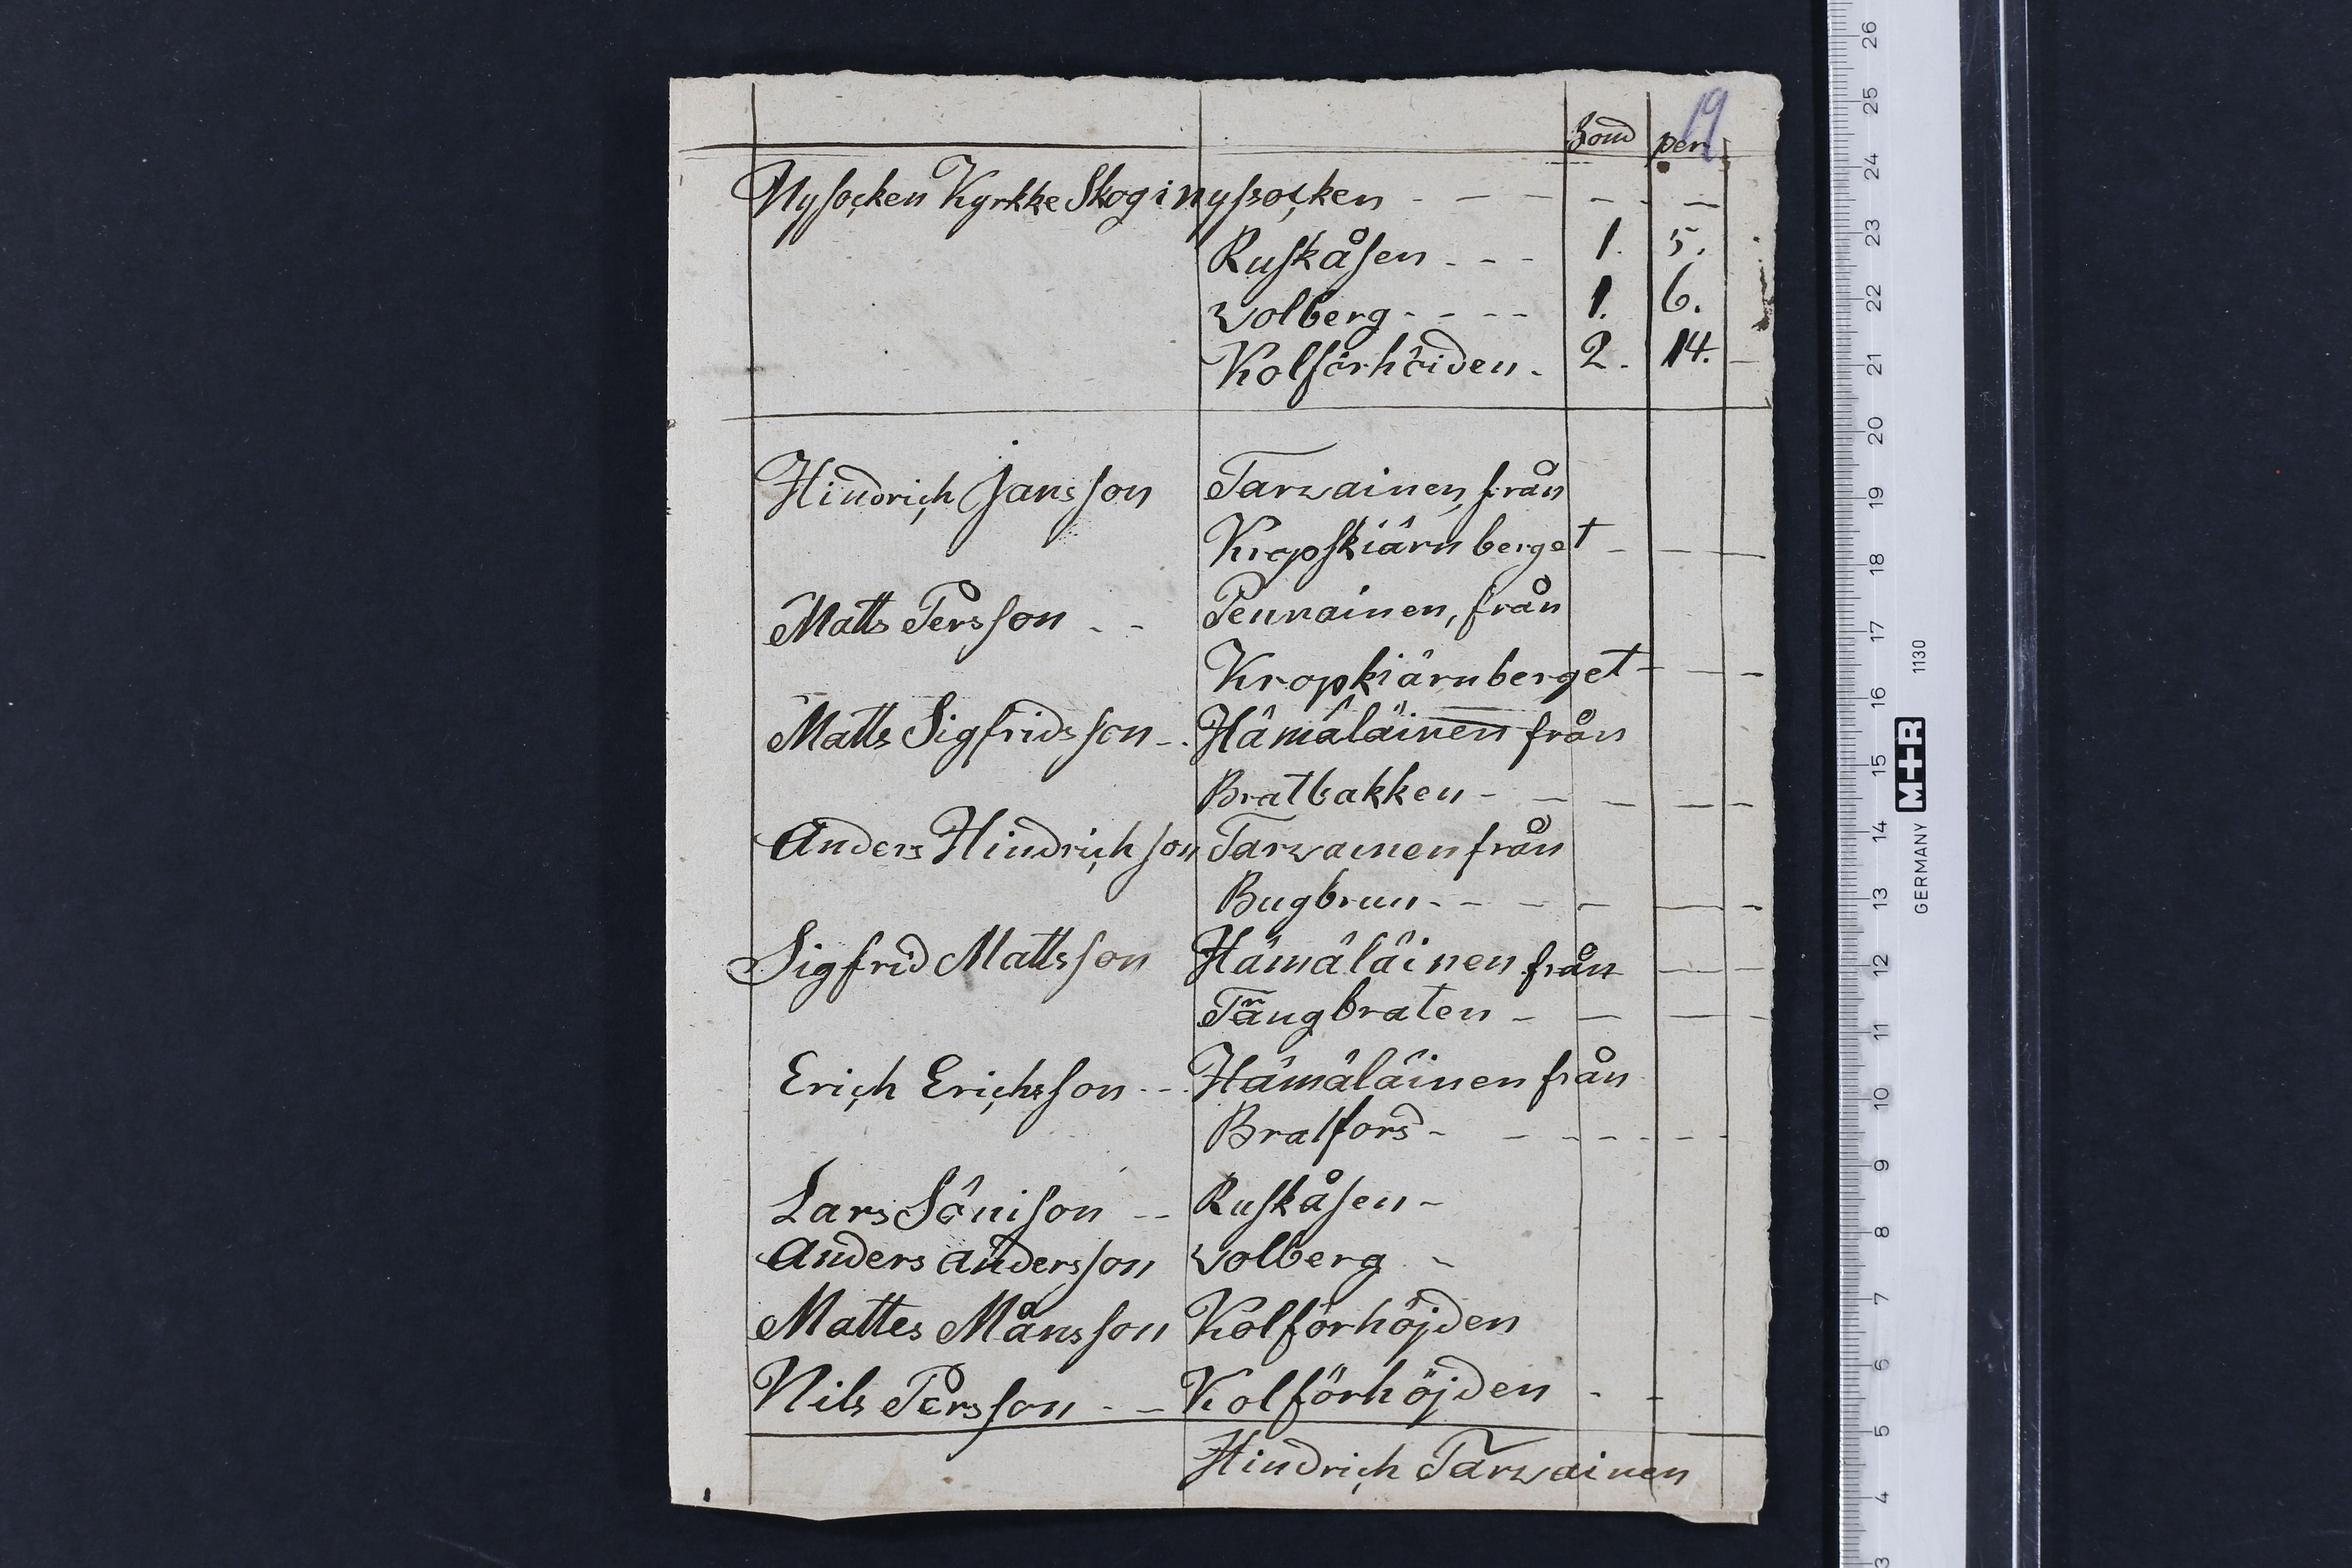 19
Bond per
Nysocken Kyrkke Skog i nysocken - - - - - -
Ruskåsen - - - 1. 5.
Wolberg - - - - 1. 6.
Kolförhöiden - 2. 14. -
Hindrich Jansson Tarwainen, från
Kropskiärnberget - - -
Matts Persson - - Pennainen, från
Kropkiärnberget - - -
Matts Sigfridsson - - Hämäläinen från
Bratbakken - - - - -
Anders Hindrichson Tarwainen från
Bugbrun - - - - - -
Sigfrid Mattsson Hämäläinen från - -
Tängbraten - - - -
Erich Erichsson - - Hämäläinen från
Bratfors - - - - - - -
Lars Sönison - - Ruskåsen -
Anders andersson Wolberg -
Mattes Månsson Kolförhöjden
Nils Persson - - Kolförhöjden - -
Hindrich Tarwainen
26
25
24
23
22
21
20
19
18
17
16
15
14
13
12
11
10
9
8
7
6
5
4
3
GERMANY M+R 1130